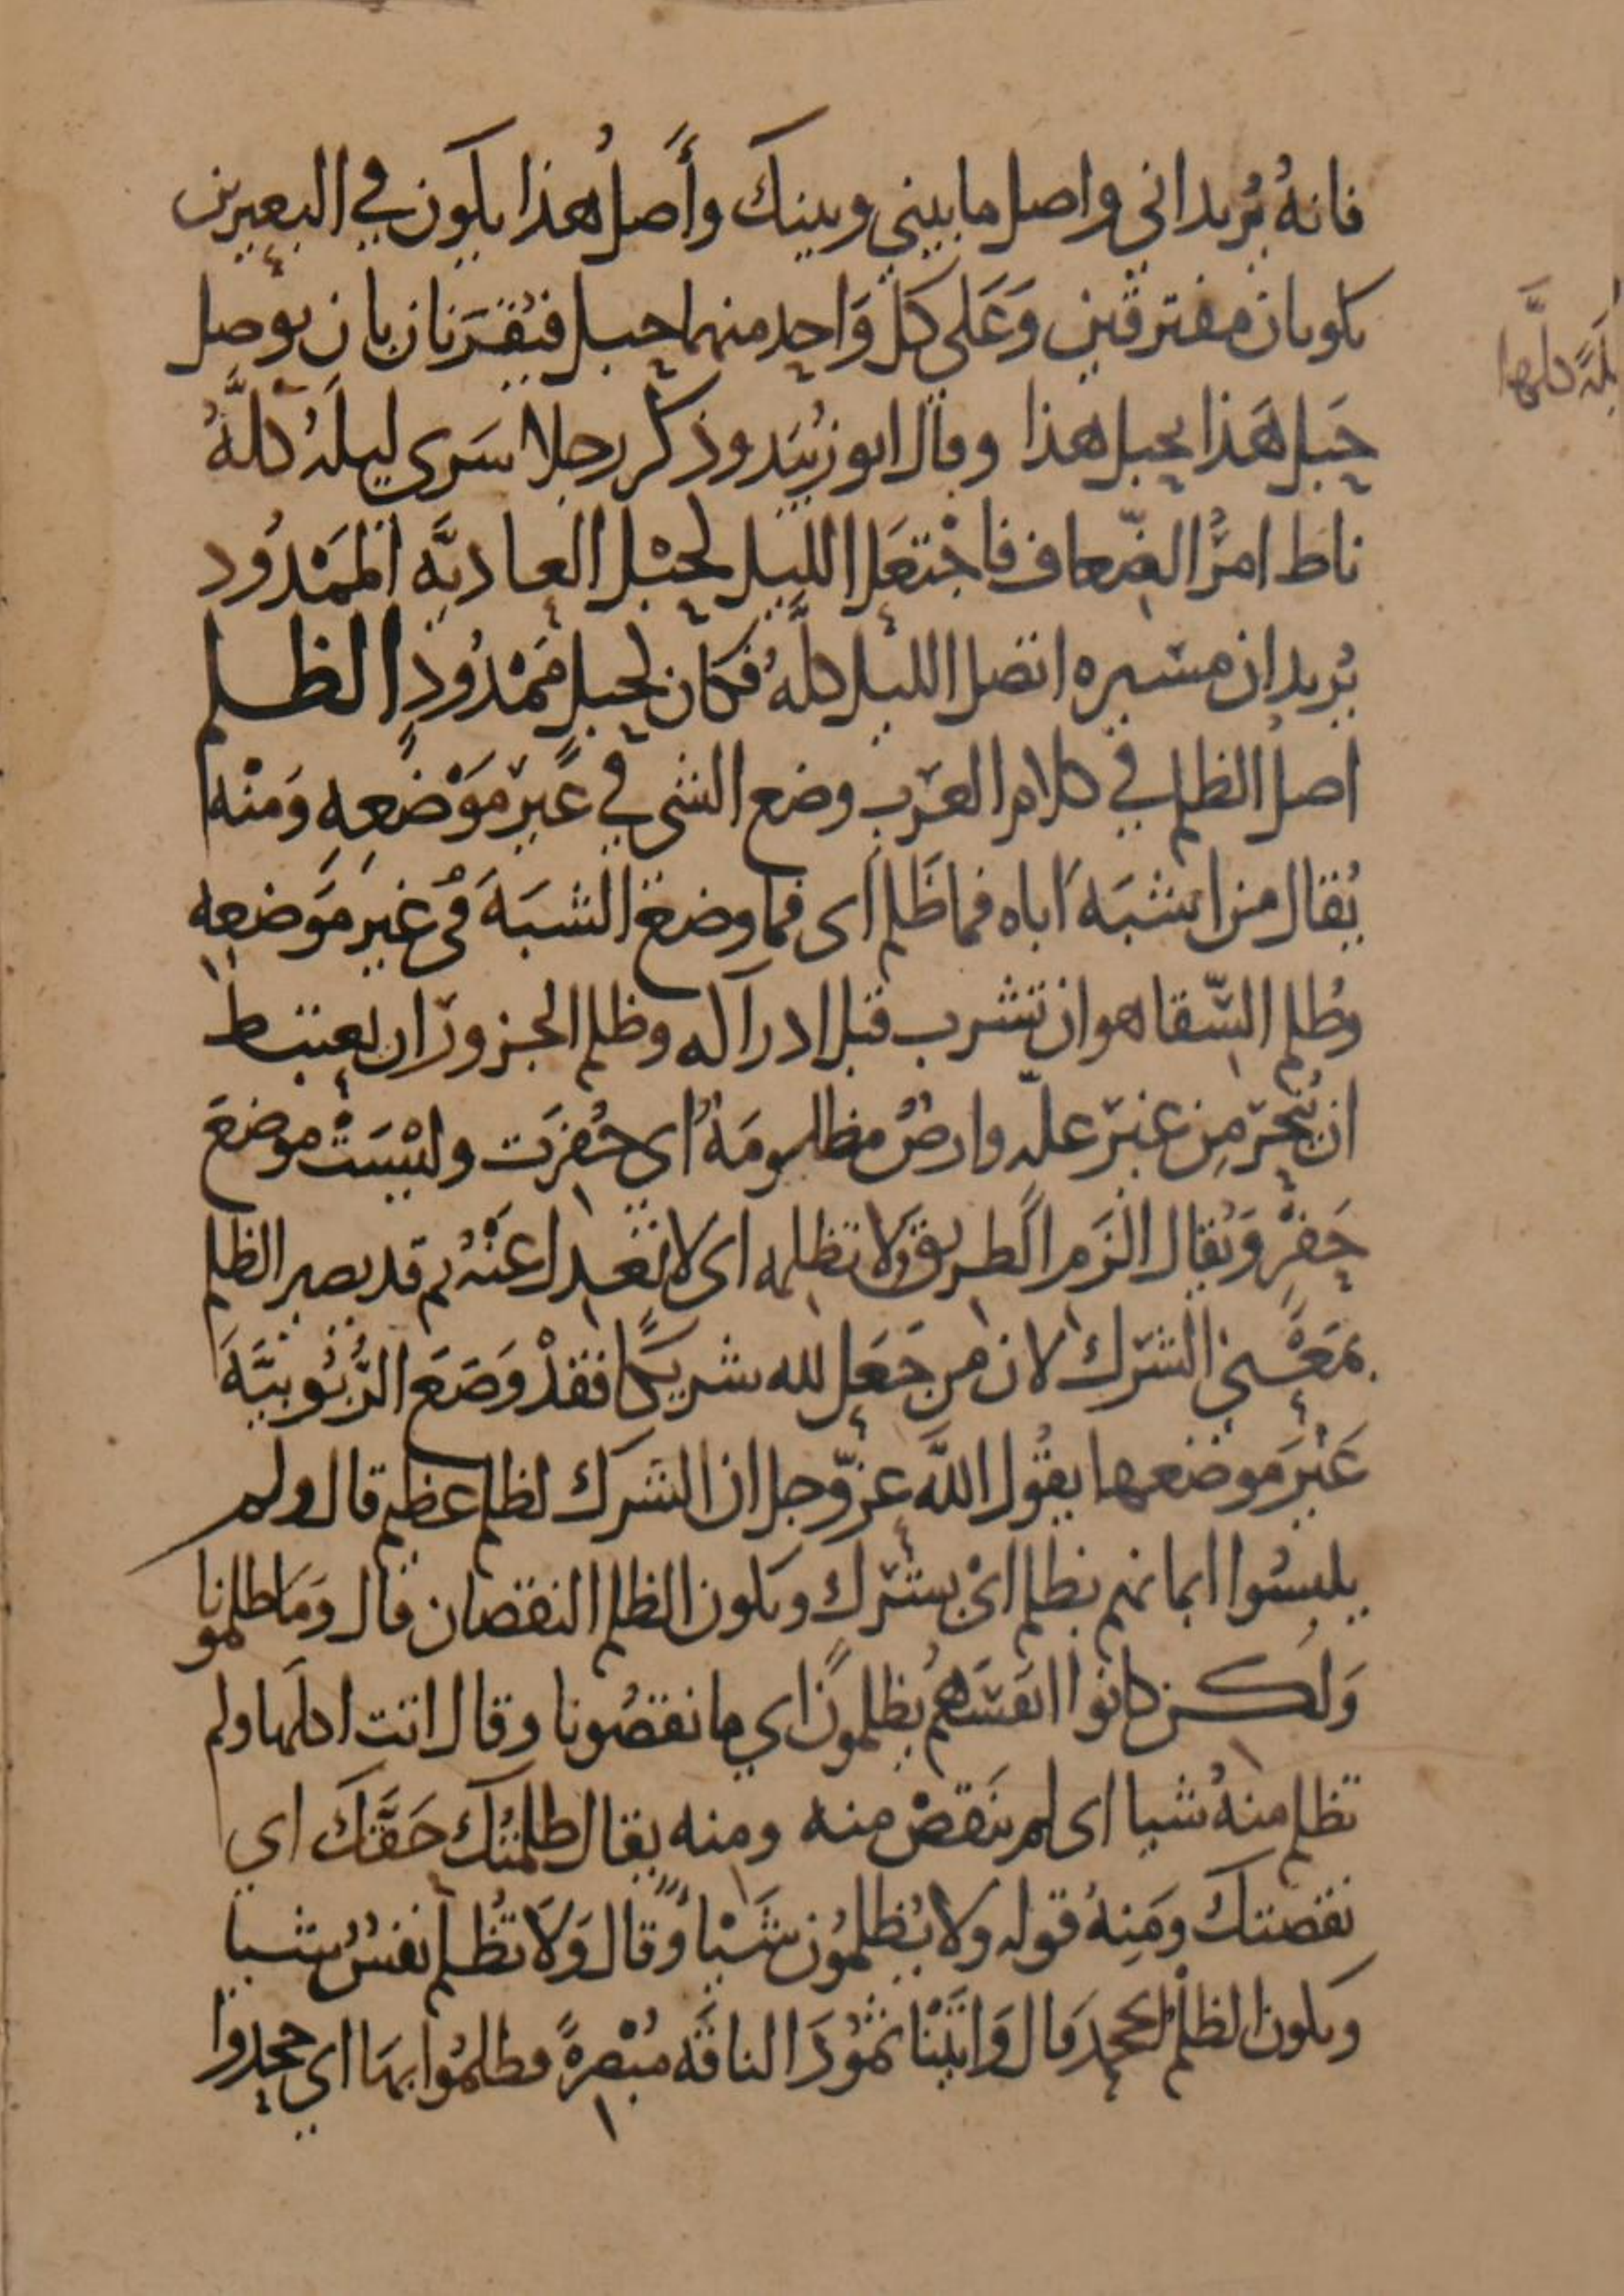 فانهُ يُريد اني واصل ما بيني وبينك وأَصلُ هذا يكون في البعيرين
يكونان مفترقين وَعَلى كل وَاحِدٍ منهما حبل فيُقرَنان بان يوصل
حَبل هَذا بحبل هذا وقال ابو زُبَيد وذكر رجلا سَرى ليلهُ كلَّهُ
ناط امرَ الضِّعاف فاجْتعَل الليل كحبْل العاديَّه الممْدُود
يُريد ان مسيره اتصل الليل كلَّهُ فكان كحبل مَمْدُودٍ الظلم
اصلُ الظلم في كلام العرَب وضع الشي في غَير مَوْضعِهِ وَمنْه
يُقال من اشبَهَ اَباه فما ظَلم اى فما وضعَ الشبَهَ في غيرِ مَوضعه
وظُلم السّقا هو ان تشرب قبل ادراكه وظلم الجزور ان يعتبط
ان يُنحَر مِن غير علّه وارضٌ مظلومَةٌ اى حُفِرَت وليْسَتْ موضعَ
حَفْرٍ وَيُقال الزَم الطريق لا تظلمه اى لا تعْدل عَنْهُ ثم قد يصير الظلم
بمَعْنى الشرك لان من جَعَل لله شريكًا فقدْ وَضَعَ الرُّبُوبيَّةَ
غَيْرَ موضعها يقُول اللَّه عزّ وجل ان الشرك لظلم عظيم قال ولم
يلبسُوا ايمانهم بظلم اىْ بشرك ويكون الظلم النقصان قال وَما ظلمونا
وَلكن كانوا انفسَهُم يظلمون اي ما نقصُونا وقال اتت اكلها ولم
تظلم منهُ شيا اى لم يَنقصْ منه ومنه يقال ظلمتُكَ حَقَّكَ اي
نقصتك ومَنهُ قوله ولا يُظلمُون شَيْاً وقال وَلَا تُظلم نفسٌ شيا
ويكون الظلْم الجحد قال وَاتَيْنا ثمُودَ الناقَه مُبْصرةً فظلمُوا بهَا اي جحدوا